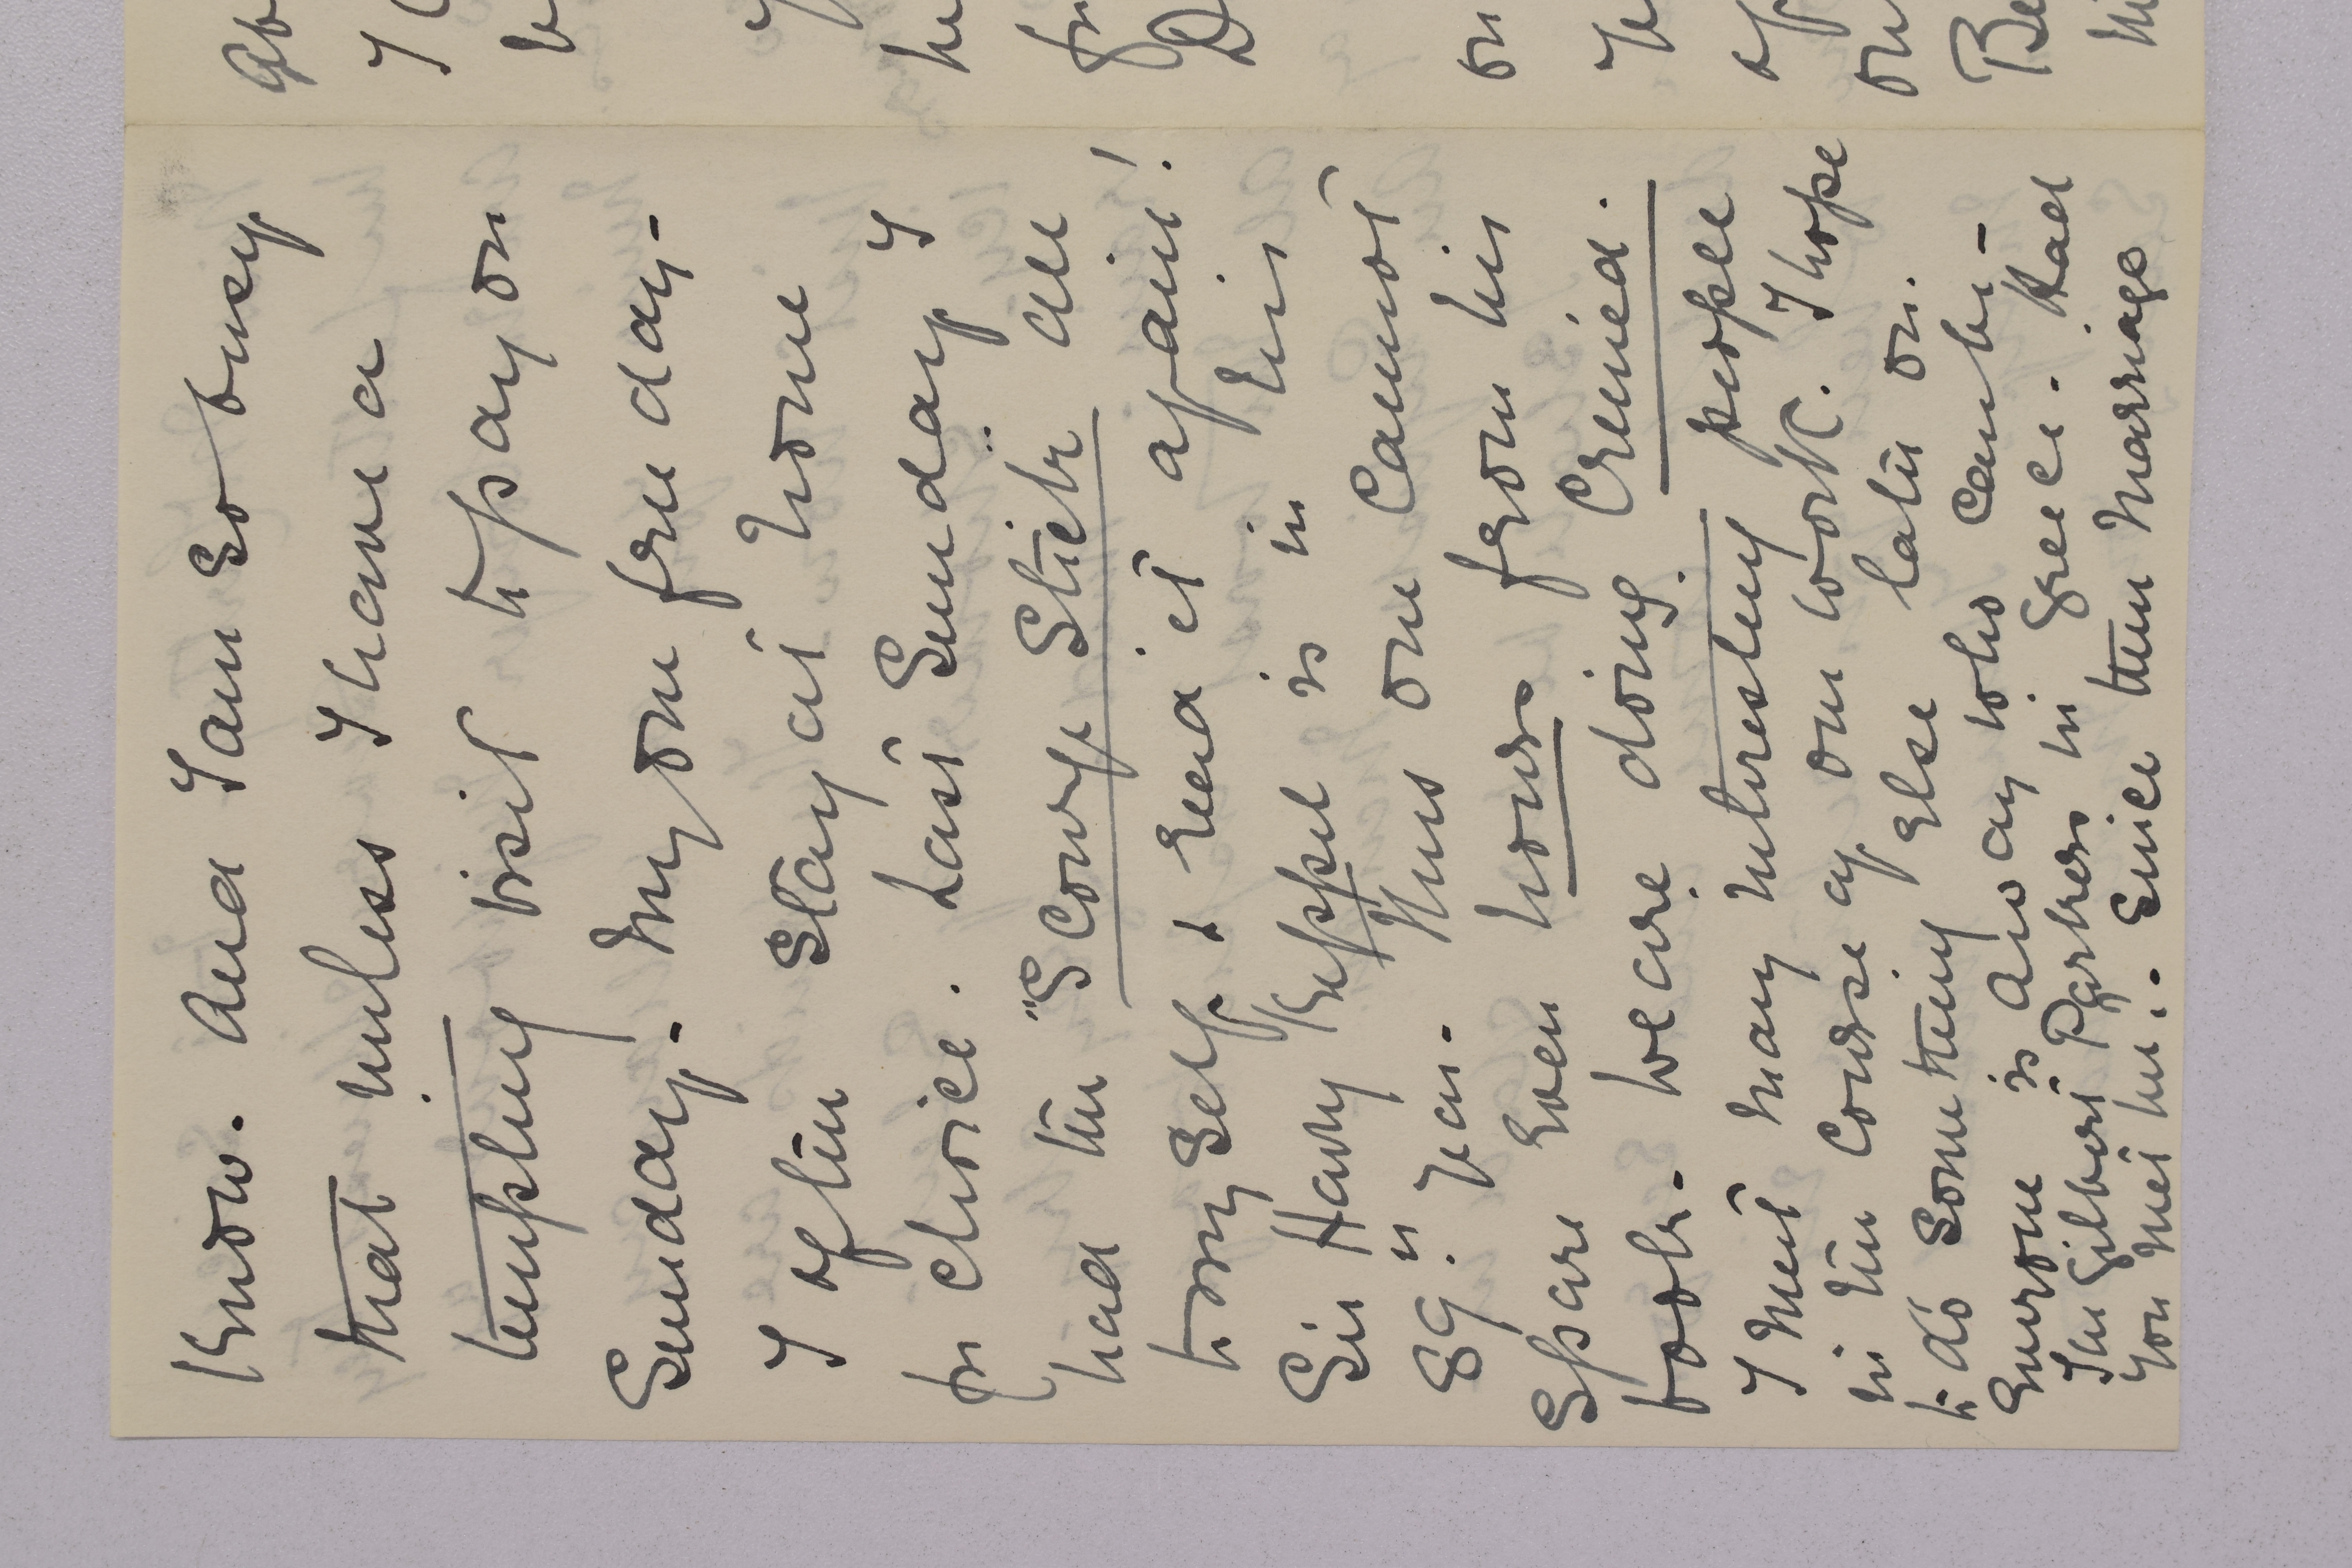 Know. And I am so busy
that unless I have a
tempting visit to pay on
Sunday - my one free day -
I often stay at home
for choice. Last Sunday I
had the "Scourge Stick" all
to myself. & read it again!
Sir Harry Keppel is in his
89th year. Thus one cannot
spare even hours from his
book. We are doing Crimea.
I meet many interesting people
in the course of our work. I hope
to do something else later on.
Everyone is away who can be -
The Gilbert Parkers in Greece. Had
you met him? Since their marriage